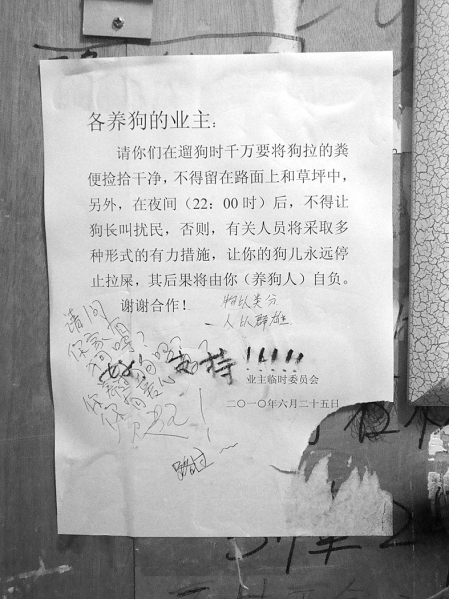 各养狗的业主：
请你们在遛狗时千万要将狗拉的粪
便捡拾干净，不得留在路面上和草坪中，
另外，在夜间（22：00时）后，不得让
狗长叫扰民，否则，有关人员将采取多
种形式的有力措施，让你的狗儿永远停
止拉屎，其后果将由你（养狗人）自负。
谢谢合作！
物以类分
人以群雄
请问
支持！！！！！
业主临时委员会
二〇一〇年六月二十五日
路过